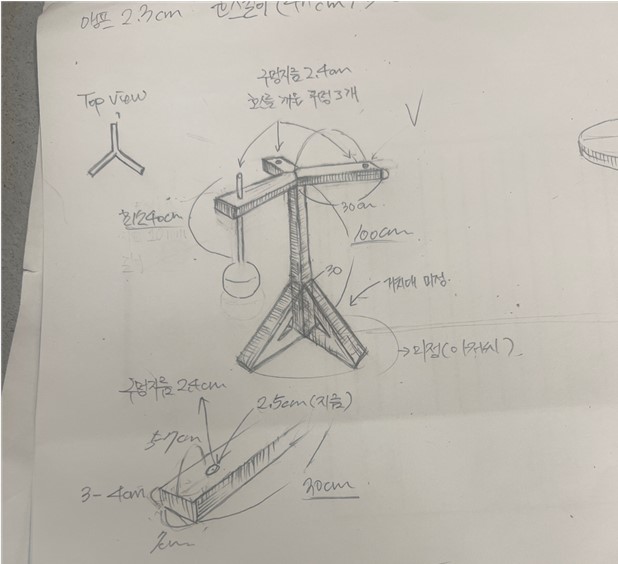 앰프 2.3cm
Top View
구멍지름 2.4cm
호스를 끼울 구멍 3개
최소40cm
30cm
100cm
30
거치대 미정.
미정(이미지)
구멍지름 2.4cm
2.5cm(지름)
5-7cm
3-4cm
30cm
7cm